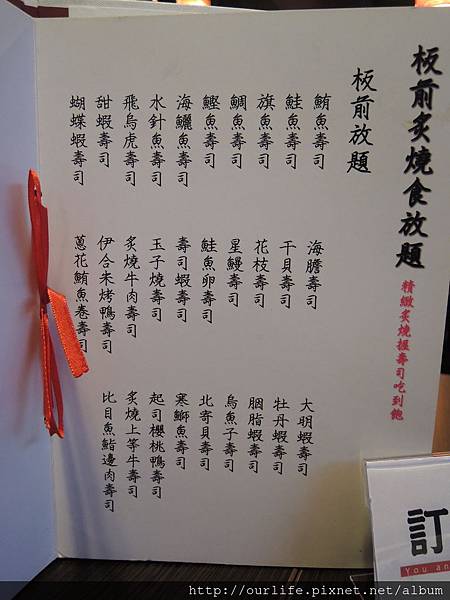 板前炙燒食放題
精緻炙燒握壽司吃到飽
板前放題
鮪魚壽司
鮭魚壽司
旗魚壽司
鯛魚壽司
鰹魚壽司
海鱺魚壽司
水針魚壽司
飛烏虎壽司
甜蝦壽司
蝴蝶蝦壽司
海膽壽司
干貝壽司
花枝壽司
星鰻壽司
鮭魚卵壽司
壽司蝦壽司
玉子燒壽司
炙燒牛肉壽司
伊合朱烤鴨壽司
蔥花鮪魚卷壽司
大明蝦壽司
牡丹蝦壽司
胭脂蝦壽司
烏魚子壽司
北寄貝壽司
寒鰤魚壽司
起司櫻桃鴨壽司
炙燒上等牛壽司
比目魚鰭邊肉壽司
訂
You an
http://ourlife.pixnet.net/album